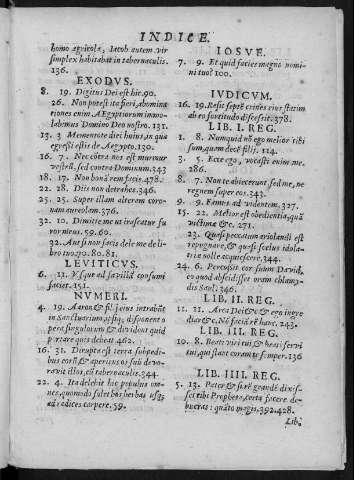 INDICE.
homo agricola, Iacob autem vir
simplex habitabat in tabernaculis.
136.
EXODVS.
8. 19. Digitus Dei est hic. 90.
26. Non potest ita fieri, abomina
tiones enim AEgyptiorum immo-
labemus Domino Deo nostro. 131.
13. 3 Mementote diei huius, in qua
egressi estis de Aegypto. 130.
16. 7. Nec cõtra nos est murmur
vestrũ, sed contra Dominum. 343
18. 17. Non bonã rem facis. 478.
22. 28. Diis non detrahes. 346.
25. 25. Super illam alteram coro-
nam aureolam. 376.
32. 10. Dimitte me ut irascatur fu
vor meus. 59.60.
32. Aut si non facis dele me de li-
bro tuo. 79. 80. 81.
LEVITICVS.
6. 11. Vsque ad favillã consumi
faciet. 151.
NVMERI.
4. 19. Aaron & filij eius intrabũt
in Sanctuarium, ipsiq; disponent o
pera singulorum & dividẽt quid
portare quis debeat 462.
16. 31. Dirupta est terra sub pedi-
bus eorũ & aperiens os suũ devo-
ravit illos, cũ tabernaculis. 344.
22. 4. Ita delebit hic populus om-
nes, quomodo solet bos herbas usq;
ad radices carpere. 59.
IOSVE.
7. 9. Et quid facies magno nomi-
ni tuo? 100.
IVDICVM.
16. 19. Rasit septẽ crines eius, statim
ab eo fortitudo discessit. 378.
LIB. I. REG.
1. 8. Numquid nõ ego melior tibi
sum, quam decẽ filij. 114.
3. 5. Ecce ego, vocasti enim me.
286.
8. 7. Non te abiecerunt sed me, ne
regnem super eos. 343.
9. 9. Eamus ad videntem. 327.
15. 22. Melior est obedientia, quã
victima &c. 271.
23. Quasi peccatum ariolandi est
repugnare, & quasi scelus idola-
tria nolle acquiescere. 344.
24. 6. Percussit cor suum David,
eo quod abscidisset oram chlamy-
dis Saul. 346.
LIB. II. REG.
11. 11. Arca Dei &c. & ego ingre
diar &c. Nõ faciã rẽ hanc. 243.
LIB. III. REG.
10. 8. Beati viri tui & beati servi
tui, qui stant coram te semper. 136
LIB. IIII. REG.
5. 13. Pater & si rẽ grandẽ dixis-
set tibi Propheta, certe facere de-
bueras: quãto magis. 392. 428.
Lib.